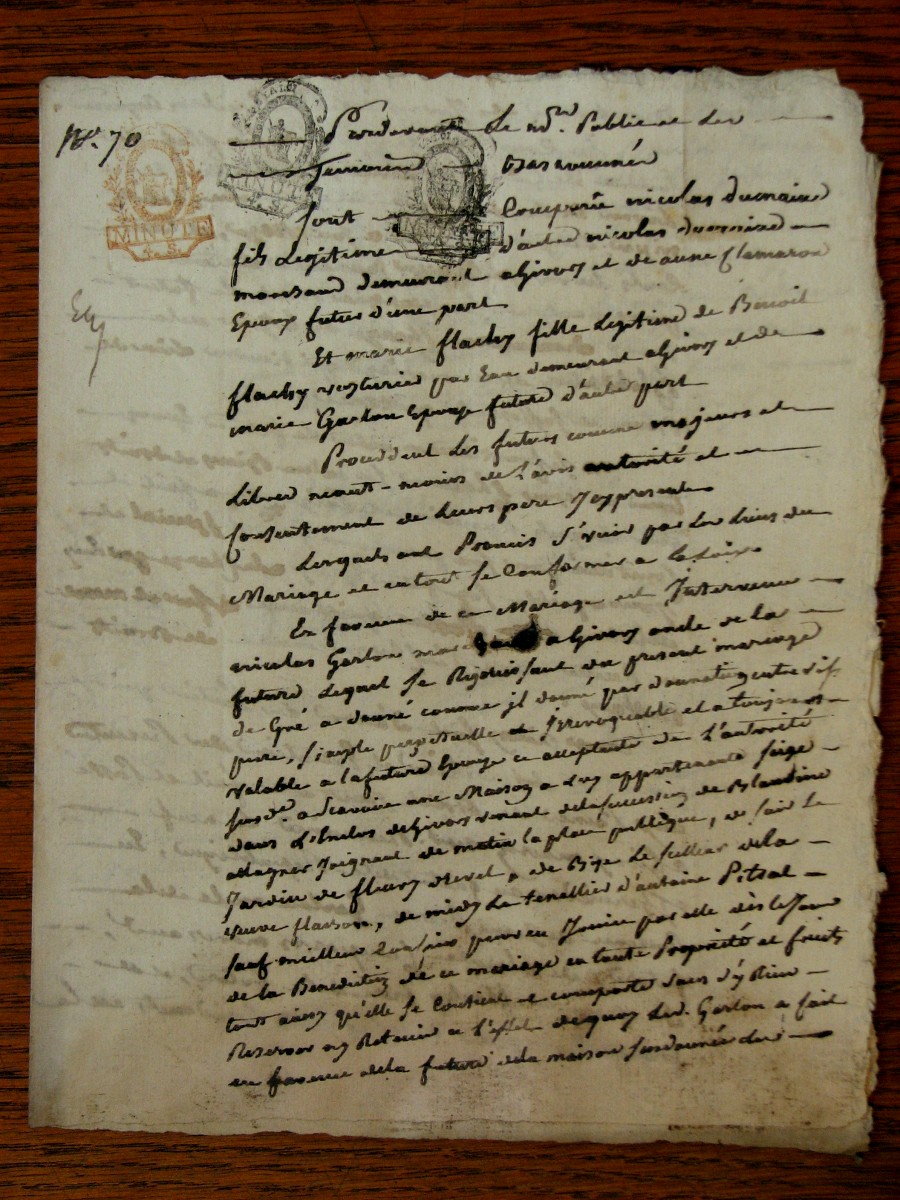 N°. 70
MINUTE
MINUTE
Pardevant Le n.re Public et Les
Temoins Bas nommés
Sont Comparû nicolas dumaine
fils Legitime d'autre nicolas dumaine
marchand demeurant a Givors et de anne flamaron
Epoux futur d'une part
Et marie flachy fille Legitime de Benoit
flachy voiturier par Eau demeurant a Givors et de
marie Garlon Epouse future d'autre part
Procedent Les futurs comme majeurs et
Libres neant-moins de L'avis autorité et
Consentement de Leurs pere Icy presents
Lesquels ont Promis S'unir par Les Liens du
Mariage et en tout Se Conformer a la Loix
En faveur de ce Mariage est Intervenu
nicolas Garlon a Givors oncle de la
future Lequel Se Rejouissant du present mariage
de Gré a donné comme il donne par donnation entre vifs
pure, Simple perpetuelle et Irrevocable et a toujours
valable a la future Epouse ce acceptante de L'autorité
Susd.e a Scavoire une Maison a luy appartenante Scize
dans L'Enclos de Givors venant de la Succession de Blandine
Magner Joignant de matin la place publique, de Soir Le
Jardin de fleury Revel de Bize Le Cellier de la
veuve flasson, de midy Le tenellier d'antoine Pitrat
Sauf meilleur Confins pour en Jouir par elle dès le Jour
de la Benediction de ce mariage en toute Propriété et fruits
tout ainsy qu'elle Se Contient et comporte Sans d'y Rien
Reserver ny Retenir a L'effet de quoy Led. Garlon a fait
en faveur de la future de la maison Susdonnée de